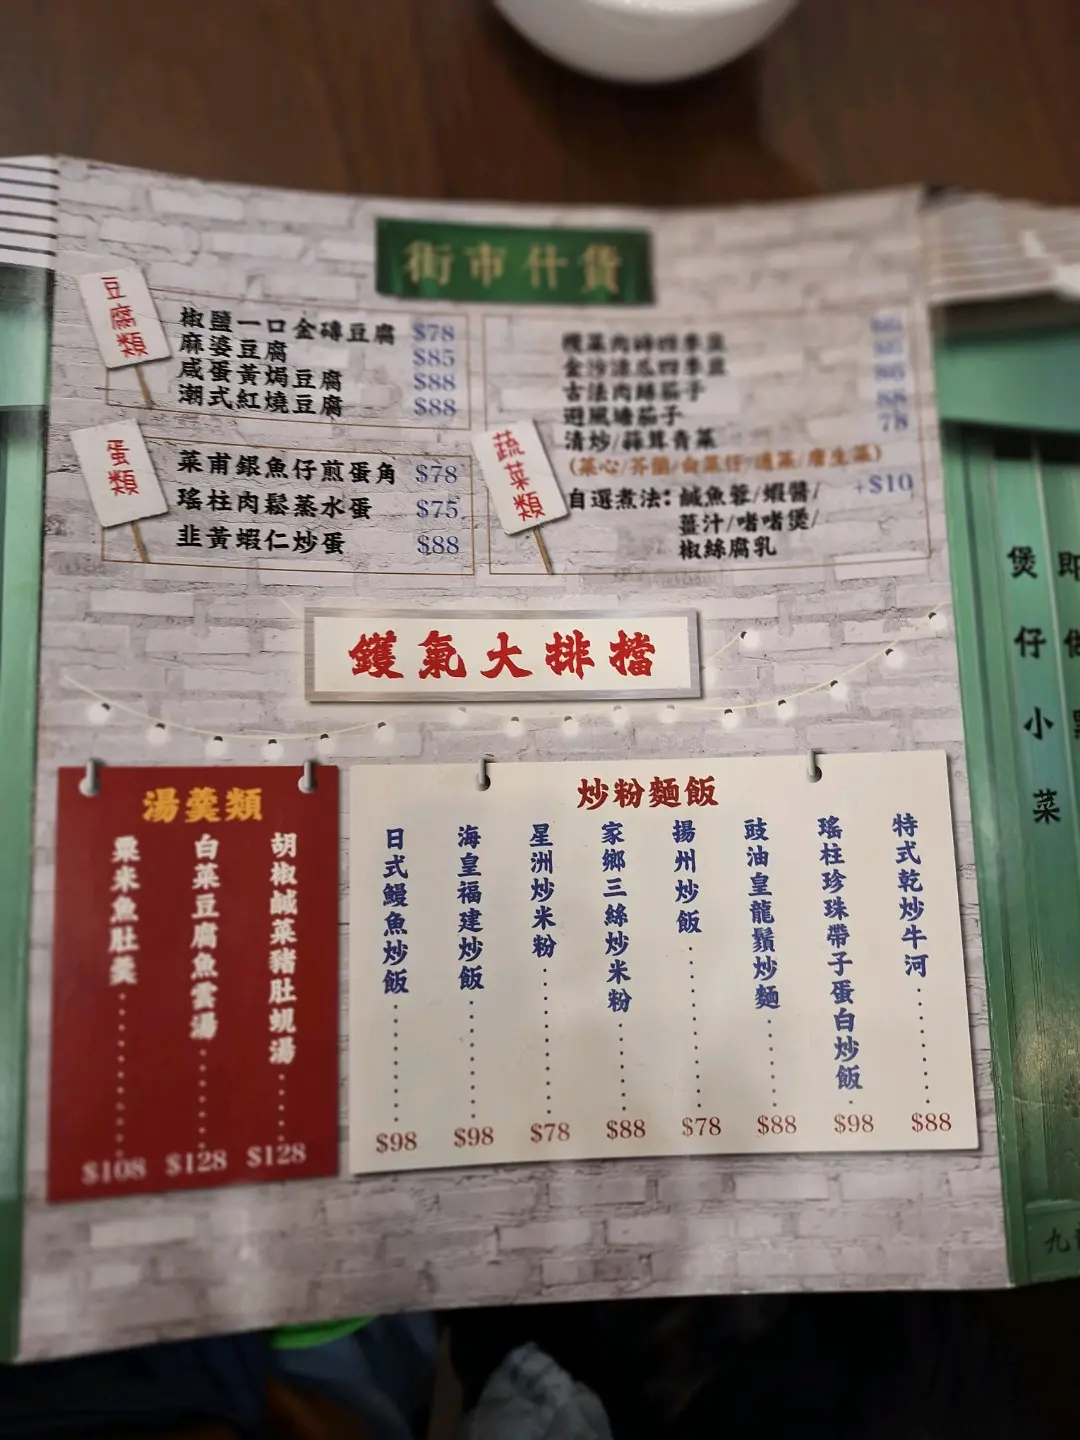 街市什貨
豆腐類
椒鹽一口金磚豆腐 $78
麻婆豆腐 $85
咸蛋黃焗豆腐 $88
潮式紅燒豆腐 $88
蛋類
菜甫銀魚仔煎蛋角 $78
瑤柱肉鬆蒸水蛋 $75
韭黃蝦仁炒蛋 $88
蔬菜類
欖菜肉碎四季豆
金沙涼瓜四季豆
古法肉絲茄子 88
避風塘茄子 78
清炒/蒜茸青菜
(菜心/芥蘭/白菜仔/通菜/唐生菜)
自選煮法：鹹魚蓉/蝦醬/ +$10
薑汁/啫啫煲/
椒絲腐乳
鑊氣大排檔
湯羹類
胡椒鹹菜豬肚蜆湯 $128
白菜豆腐魚雲湯 $128
粟米魚肚羹 $108
炒粉麵飯
特式乾炒牛河 $88
瑤柱珍珠帶子蛋白炒飯 $98
豉油皇龍鬚炒麵 $88
揚州炒飯 $78
家鄉三絲炒米粉 $88
星洲炒米粉 $78
海皇福建炒飯 $98
日式鰻魚炒飯 $98
即
煲仔小菜
九